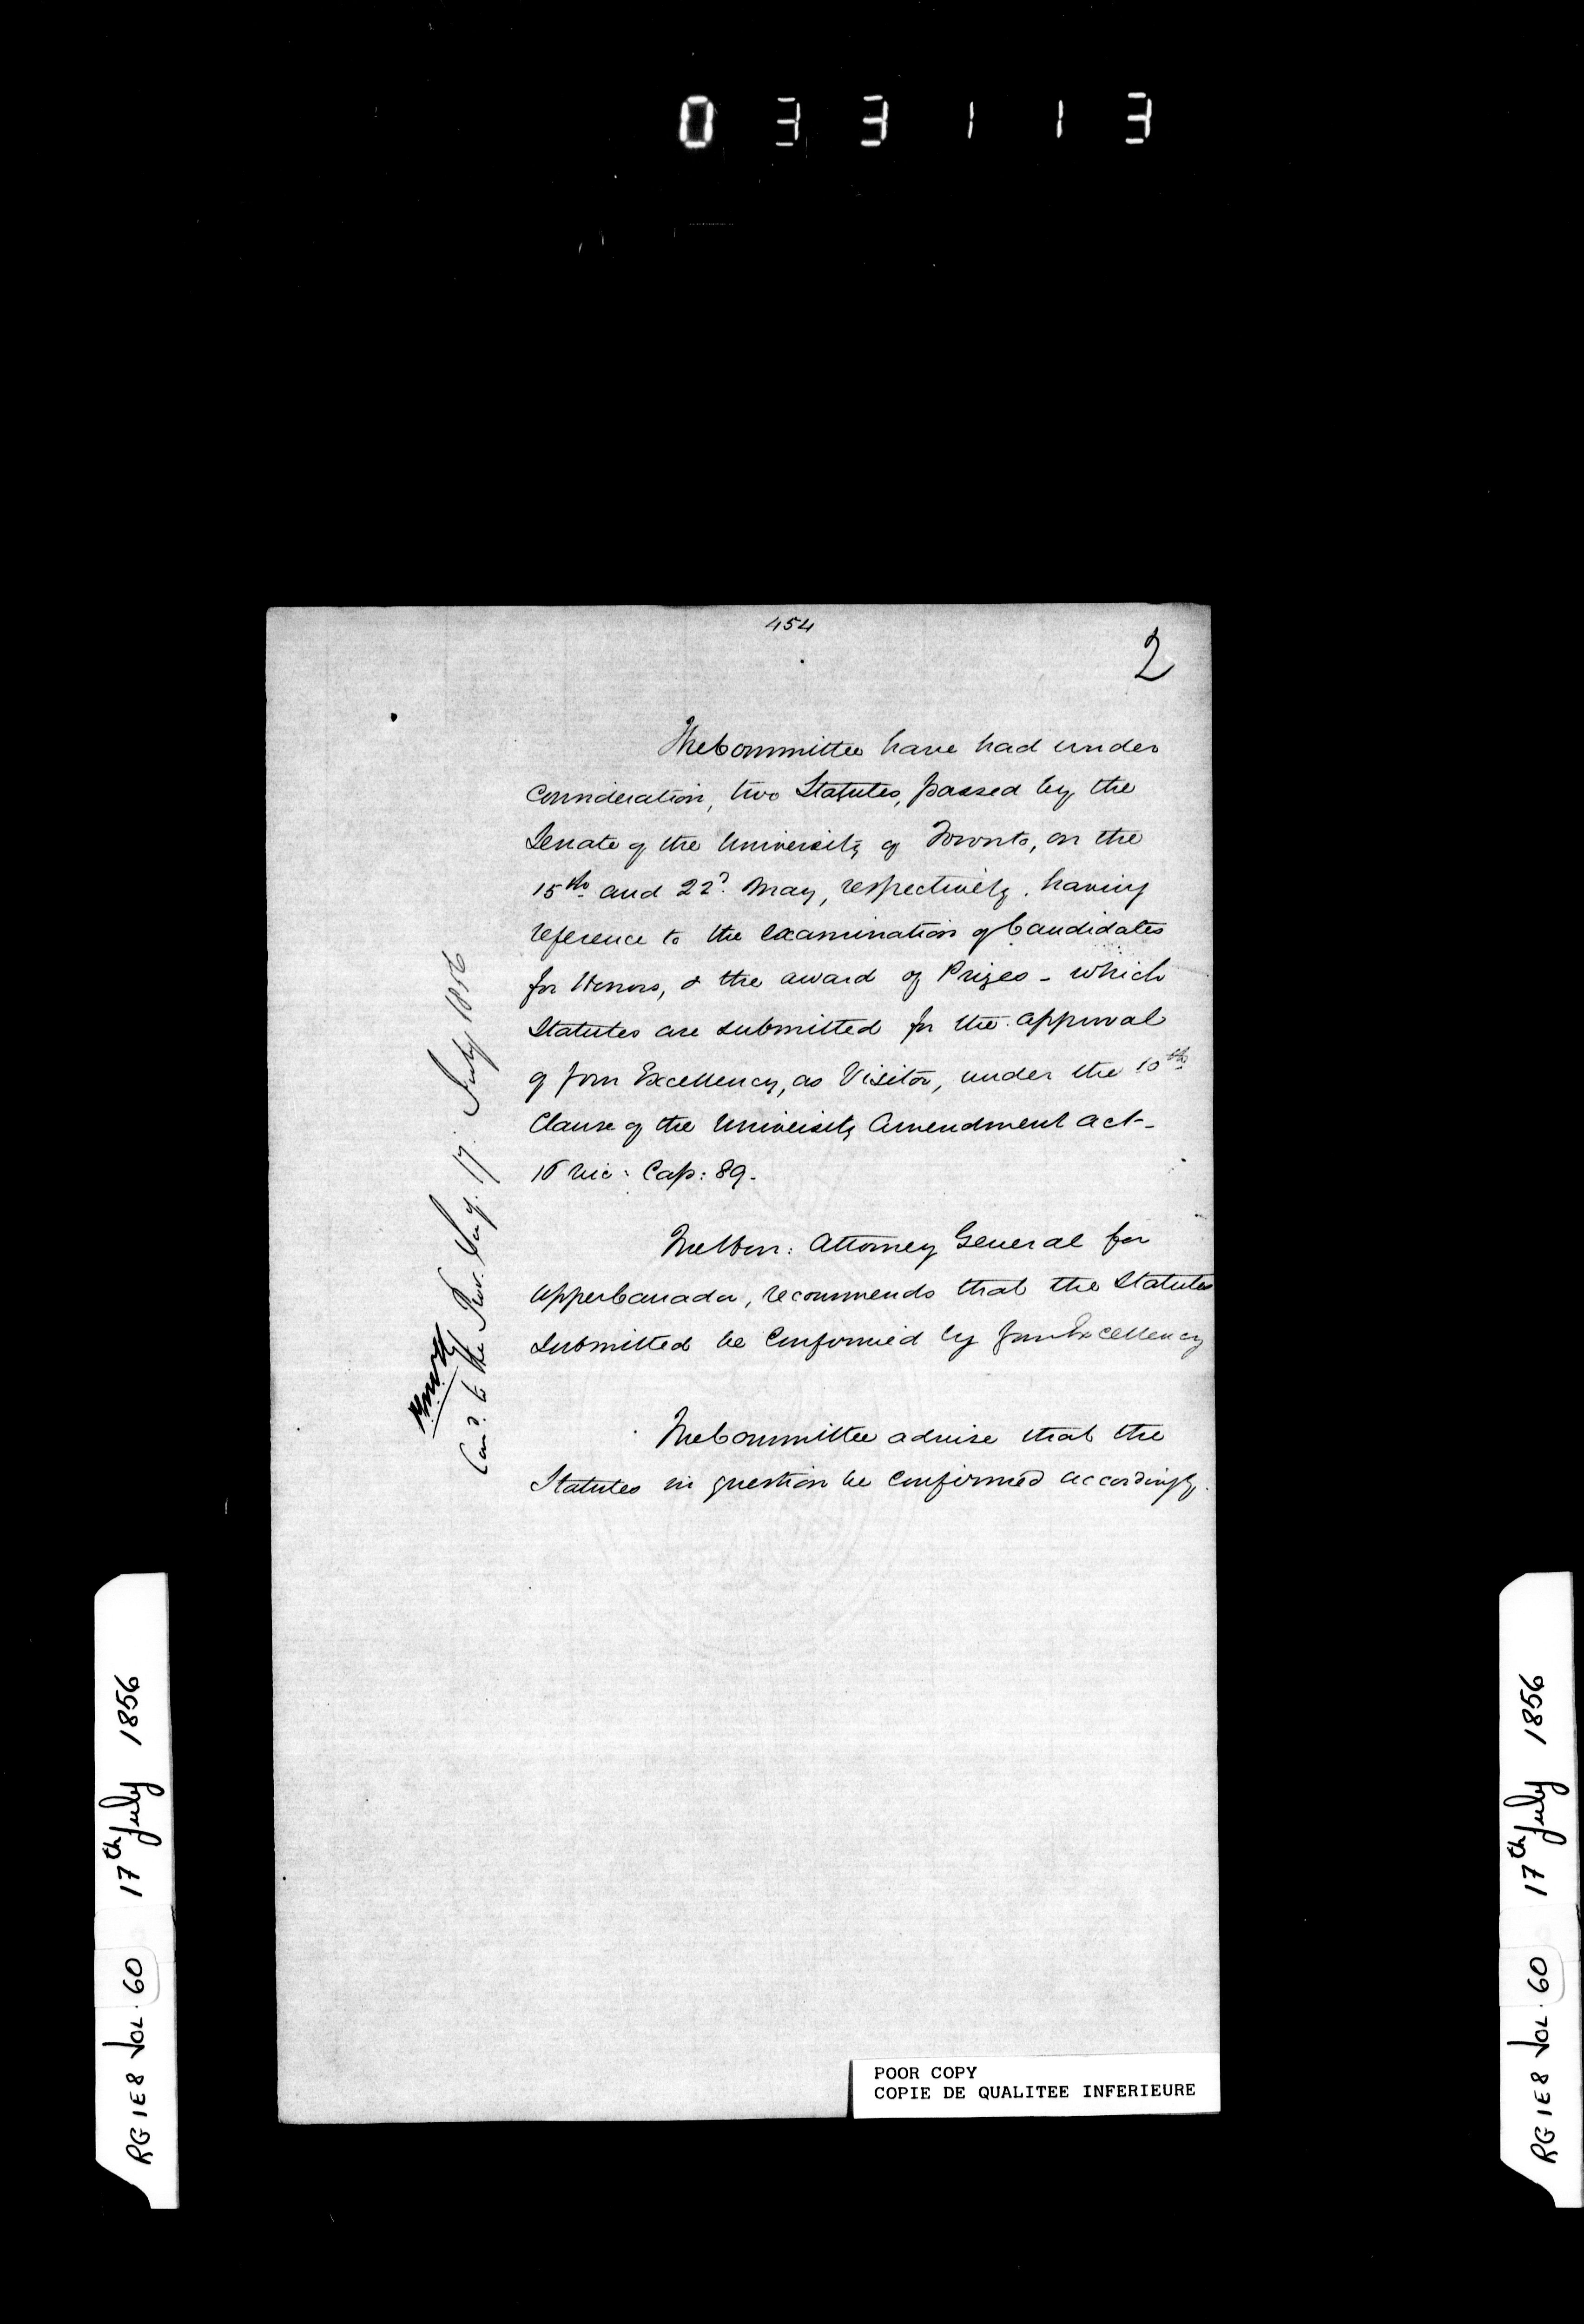 033113
454
2
The Committee have had under
consideration, two Statutes, passed by the
Senate of the University of Toronto, on the
15th and 22d. May, respectively. having
reference to the examination of Candidates
for Honors, & the award of Prizes - which
Statutes are submitted for the approval
of Your Excellency, as Visitor, under the 10th
Clause of the University Amendment Act -
16 Vic: Cap: 89.
The Hon: Attorney General for
Upper Canada, recommends that the Statutes
submitted be confirmed by Your Excellency
The Committee advise that the
Statutes in question be confirmed accordingly.
to the Prov. Secy. 17. July 1856
RG 1 E8 VOL. 60 17th July 1856
RG 1 E8 VOL. 60 17th July 1856
POOR COPY
COPIE DE QUALITEE INFERIEURE